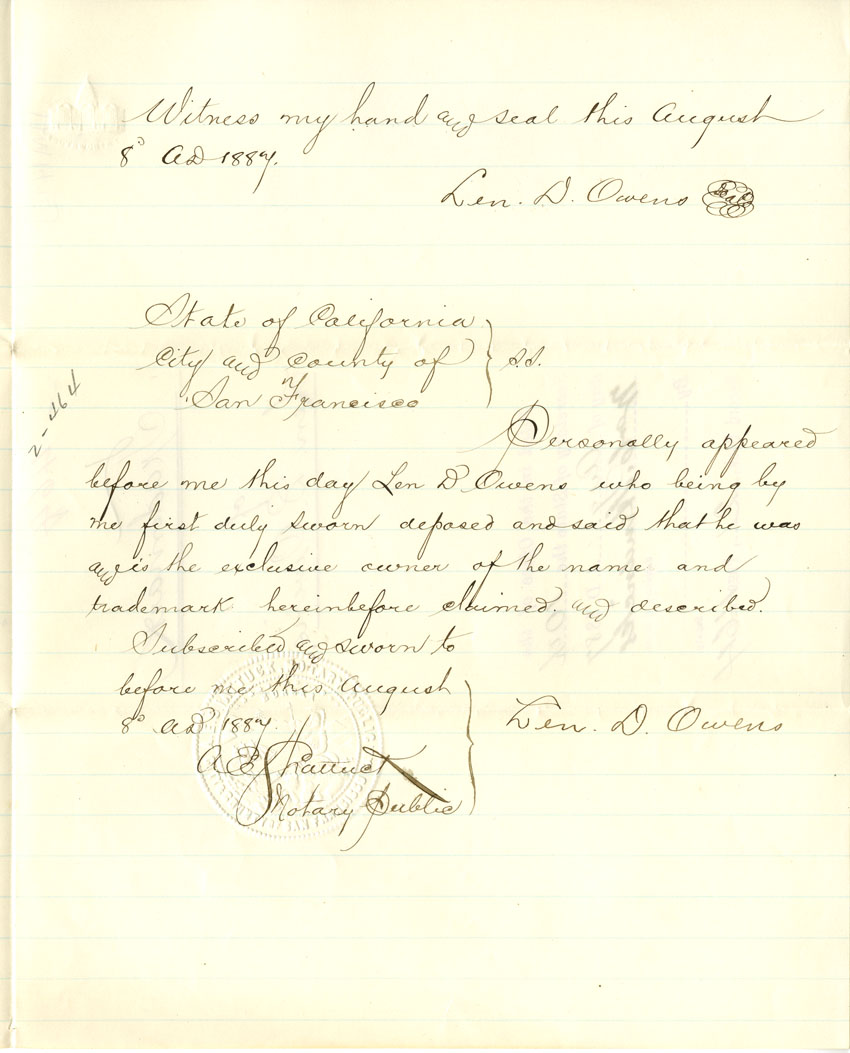 Witness my hand and seal this August
8° AD 1887.
Len. D. Owens Seal
State of California
City and County of } s.s.
San Francisco
Personally appeared
before me this day Len D Owens who being by
me first duly sworn deposed and said that he was
and is the exclusive owner of the name and
trademark hereinbefore claimed. and described.
Subscribed and sworn to
before me this August
8° AD 1887.
Len. D. Owens
A E Shattuck
Notary Public
2-464